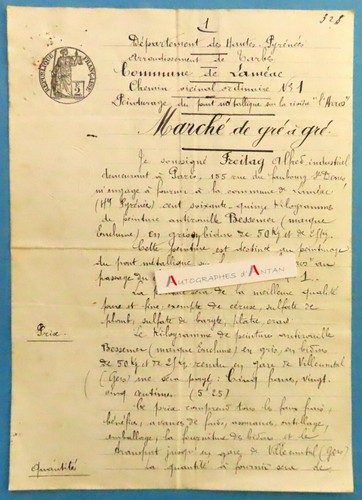 1
328
Département des Hautes-Pyrénées
Arrondissement de Tarbes
Commune de Laméac
Chemin vicinal ordinaire N° 1
Peinturage du pont métallique sur la rivière "l'Arros"
Marché de gré à gré
RÉPUBLIQUE FRANÇAISE
Je soussigné Freitag Alfred, industriel
demeurant à Paris, 155 rue du faubourg St Denis,
m'engage à fournir à la commune de Laméac
(Htes Pyrénées) cent soixante-quinze kilogrammes
de peinture antirouille Bessemer (marque
enclume) en gris en bidons de 50 kg et de
Cette peinture est destinée au peinturage
du pont métallique sur au
passage du 1.
AUTOGRAPHES D'ANTAN
La sera de la meilleure qualité
pure et fine, exempte de céruse, sulfate de
plomb, sulfate de baryte, plâtre, craie.
Prix
Le Kilogramme de peinture antirouille
Bessemer (marque enclume) en gris, en bidons
de 50 kg et de 25 kg rendu en gare de Villecomtal
(Gers) me sera payé : Cinq francs, vingt-
cinq centimes (5f 25)
Ce prix comprend tous les faux frais,
bénéfice, avances de fonds, assurance, outillage,
emballage, la fourniture de bidons et le
transport jusqu'en gare de Villecomtal (Gers)
Quantités
La quantité à fournir sera de